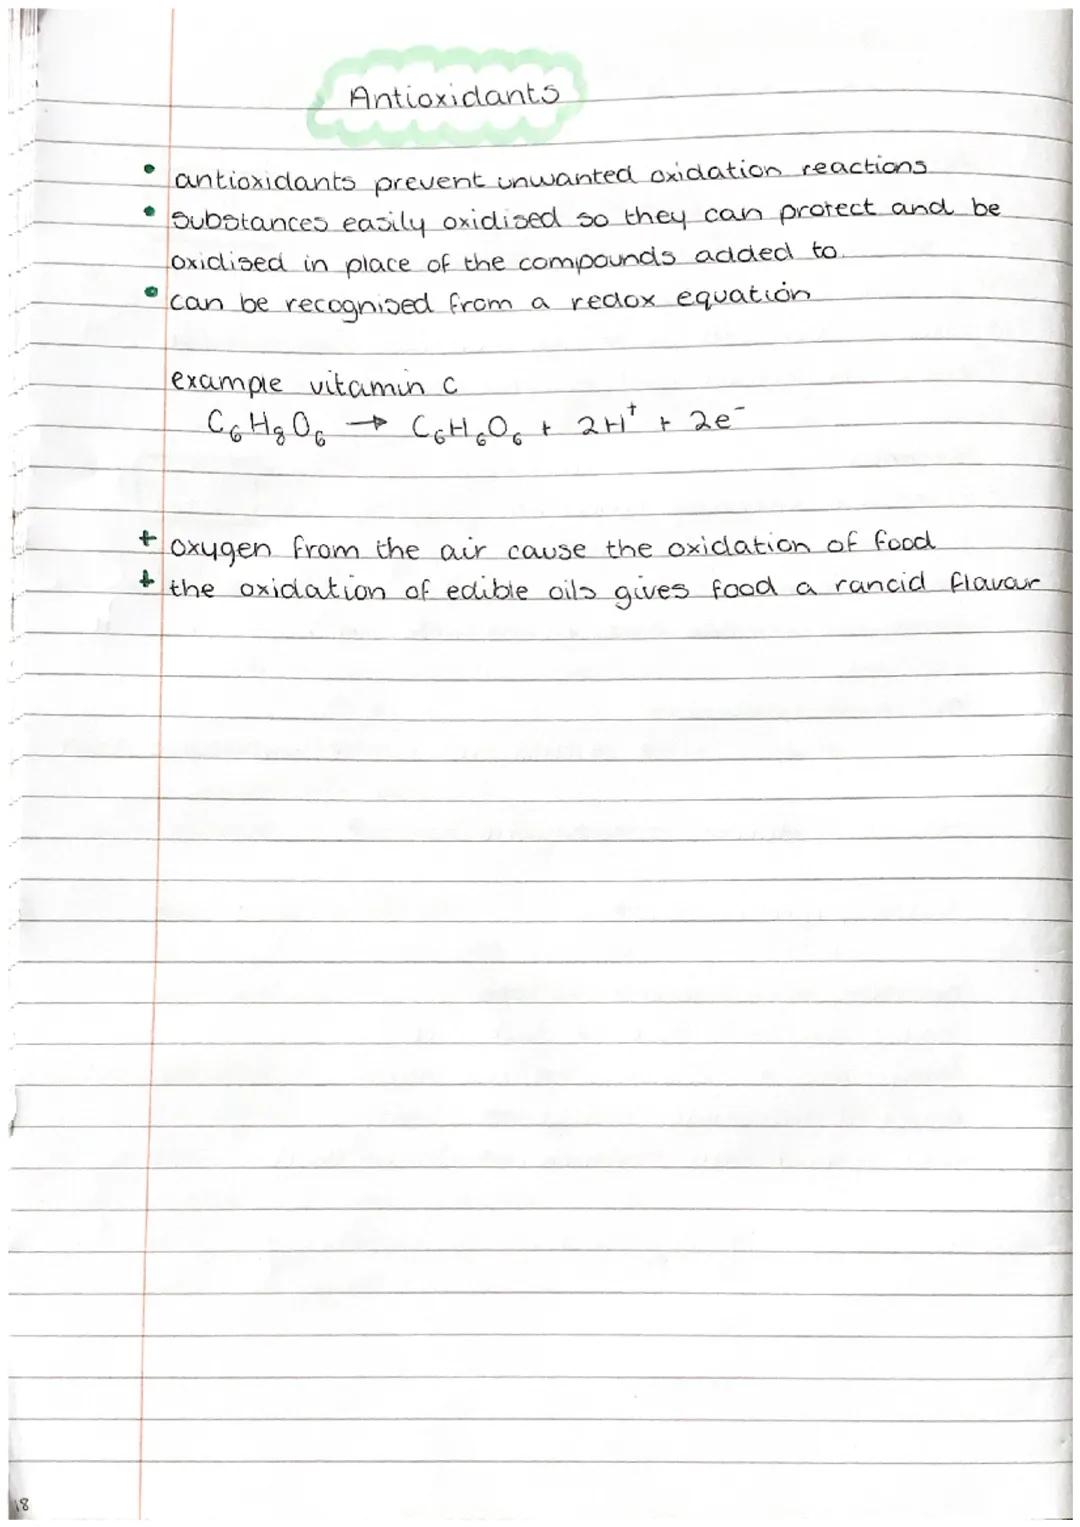 Antioxidants
• antioxidants prevent unwanted oxidation reactions
• substances easily oxidised so they can protect and be
oxidised in place of the compounds added to.
• can be recognised from a redox equation
example vitamin c
C₆H₈O₆ → C₆H₆O₆ + 2H⁺ + 2e⁻
+ oxygen from the air cause the oxidation of food
+ the oxidation of edible oils gives food a rancid flavour
18